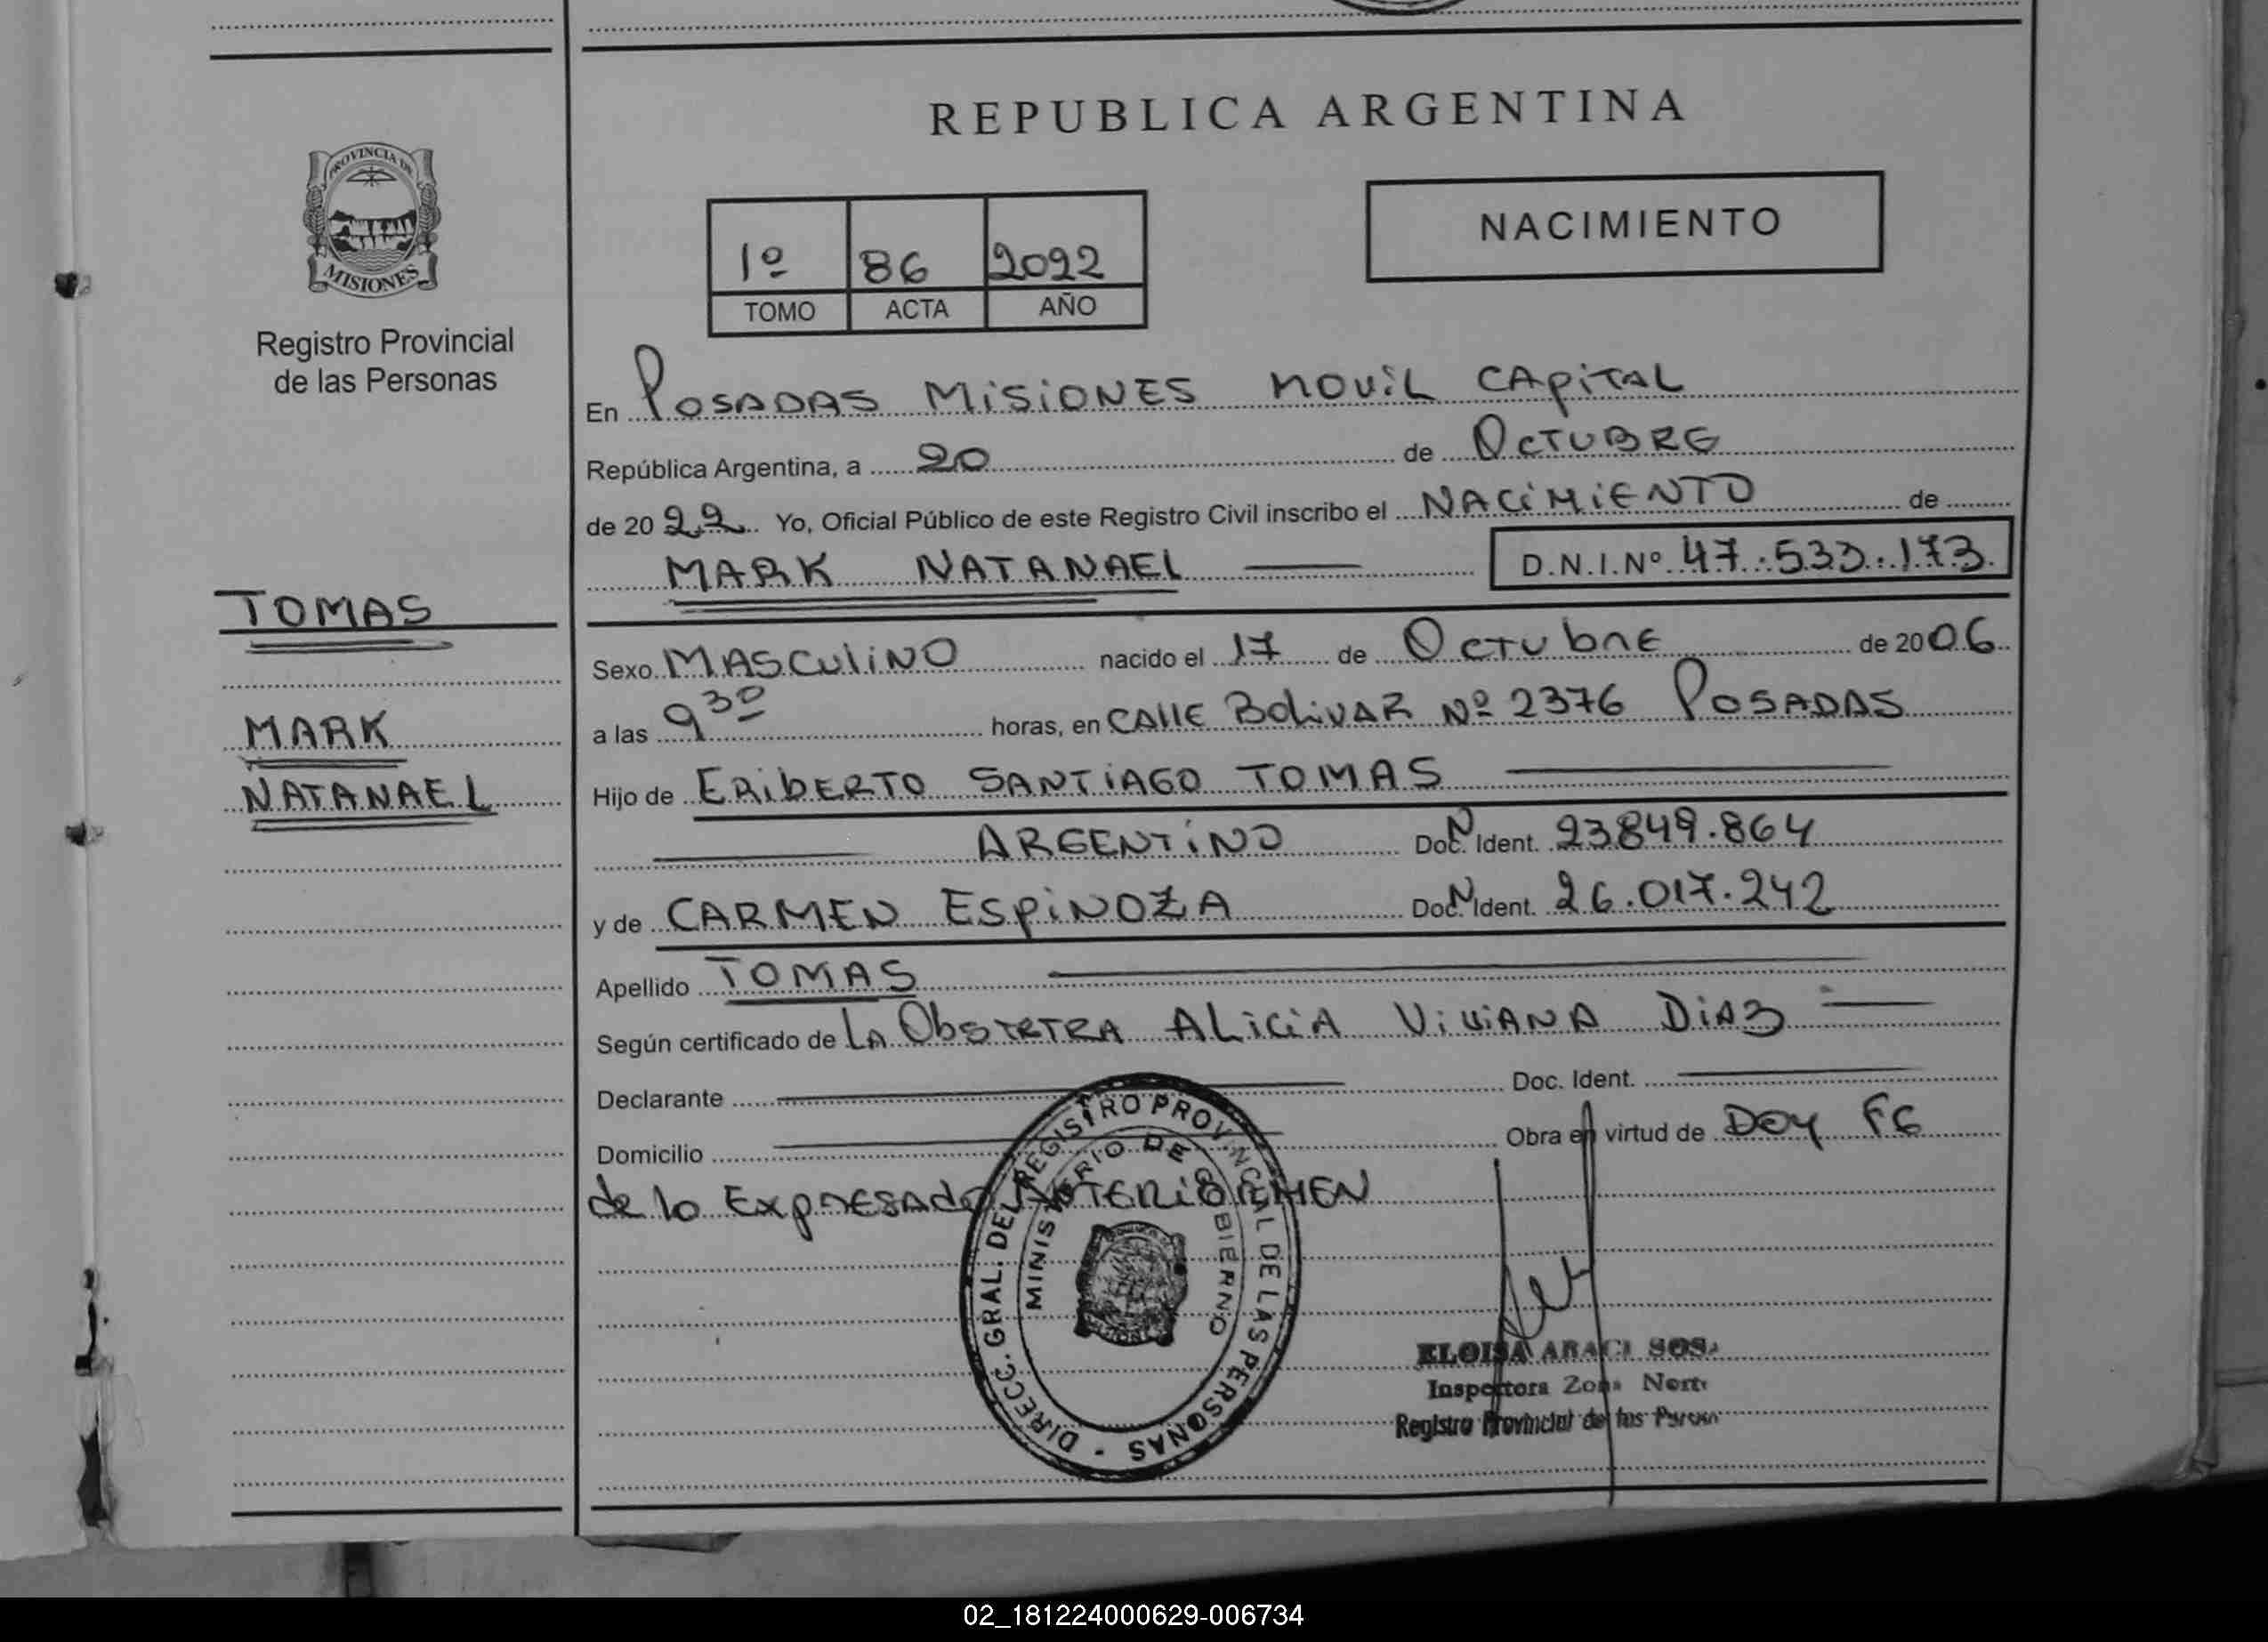 REPUBLICA ARGENTINA
PROVINCIA DE
MISIONES
Registro Provincial
de las Personas
1º 86 2022
TOMO ACTA AÑO
NACIMIENTO
En POSADAS MISIONES MOVIL CAPITAL
República Argentina, a 20 de OCTUBRE
de 20 22 Yo, Oficial Público de este Registro Civil inscribo el NACIMIENTO de
MARK NATANAEL D.N.I.Nº 47.533.173
TOMAS
MARK
NATANAEL
Sexo MASCULINO nacido el 17 de OCTUBRE de 2006
a las 9 30 horas, en CALLE BOLIVAR Nº 2376 POSADAS
Hijo de ERIBERTO SANTIAGO TOMAS
ARGENTINO Doc. N Ident. 23849.864
y de CARMEN ESPINOZA Doc. N Ident. 26.017.242
Apellido TOMAS
Según certificado de LA OBSTETRA ALICIA VIVIANA DIAZ
Declarante Doc. Ident.
Domicilio Obra en virtud de DOY FE
de lo EXPRESADO
DIRECC. GRAL. DEL REGISTRO PROVINCIAL DE LAS PERSONAS -
MINISTERIO DE GOBIERNO
ELOISA ARACI SOSA
Inspectora Zona Norte
Registro Provincial de las
02_181224000629-006734